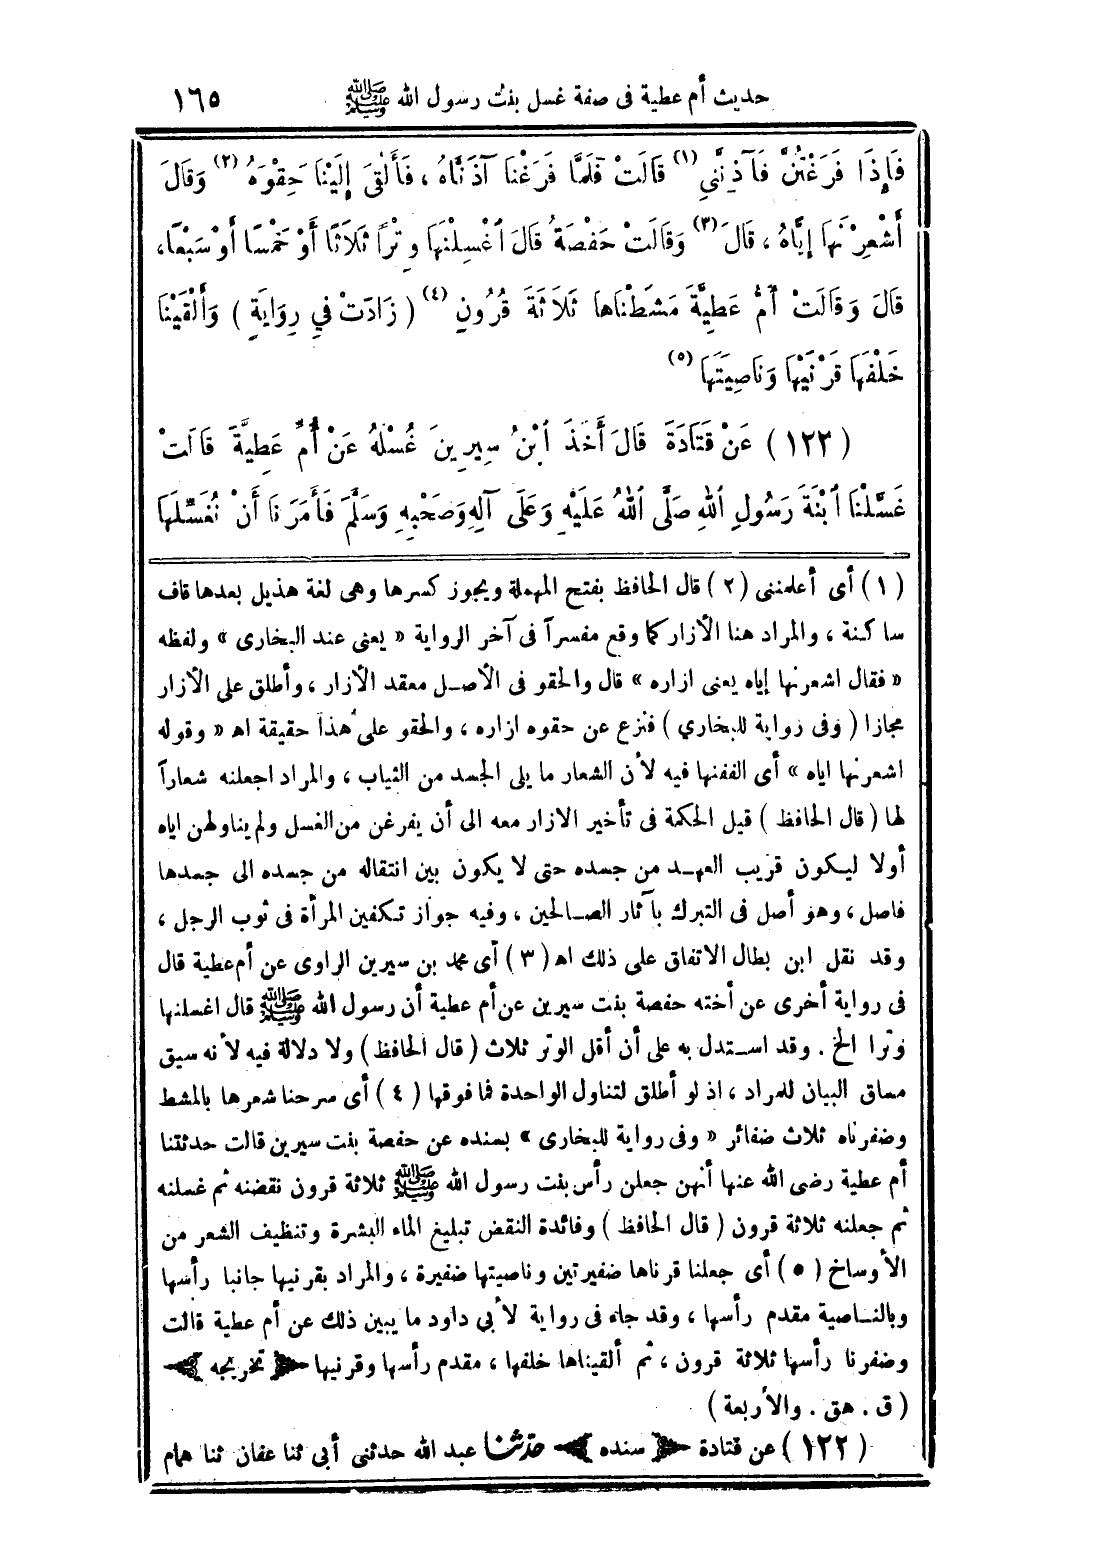 حديث أم عطية فى صفة غسل بنت رسول الله ﷺ ١٦٥
فَإِذَا فَرَغْتُنَّ فَآذِنَّنِي (١) قَالَتْ فَلَمَّا فَرَغْنَا آذَنَّاهُ ، فَأَلْقَى إِلَيْنَا حِقْوَهُ (٢) وَقَالَ
أَشْعِرْنَهَا إِيَّاهُ ، قَالَ (٣) وَقَالَتْ حَفْصَةُ قَالَ اغْسِلْنَهَا وِتْرًا ثَلَاثًا أَوْ خَمْسًا أَوْ سَبْعًا،
قَالَ وَقَالَتْ أُمُّ عَطِيَّةَ مَشَطْنَاهَا ثَلَاثَةَ قُرُونٍ (٤) ( زَادَتْ فِي رِوَايَةٍ ) وَأَلْقَيْنَا
خَلْفَهَا قَرْنَيْهَا وَنَاصِيَتَهَا (٥)
( ١٢٢ ) عَنْ قَتَادَةَ قَالَ أَخَذَ ابْنُ سِيرِينَ غُسْلَهُ عَنْ أُمِّ عَطِيَّةَ قَالَتْ
غَسَّلْنَا ابْنَةَ رَسُولِ اللهِ صَلَّى اللهُ عَلَيْهِ وَعَلَى آلِهِ وَصَحْبِهِ وَسَلَّمَ فَأَمَرَنَا أَنْ نُغَسِّلَهَا
( ١ ) أى أعلمننى ( ٢ ) قال الحافظ بفتح المهملة ويجوز كسرها وهى لغة هذيل بعدها قاف
ساكنة ، والمراد هنا الأزار كما وقع مفسراً فى آخر الرواية « يعنى عند البخارى » ولفظه
« فقال اشعرنها إياه يعنى ازاره » قال والحقو فى الأصل معقد الأزار ، وأطلق على الأزار
مجازا ( وفى رواية للبخاري ) فنزع عن حقوه ازاره ، والحقو على هذا حقيقة اه « وقوله
اشعرنها اياه » أى الففنها فيه لأن الشعار ما يلى الجسد من الثياب ، والمراد اجعلنه شعاراً
لها ( قال الحافظ ) قيل الحكمة فى تأخير الازار معه الى أن يفرغن من الغسل ولم يناولهن اياه
أولا ليكون قريب العهد من جسده حتى لا يكون بين انتقاله من جسده الى جسدها
فاصل ، وهو أصل فى التبرك بآثار الصالحين ، وفيه جواز تكفين المرأة فى ثوب الرجل ،
وقد نقل ابن بطال الاتفاق على ذلك اه ( ٣ ) أى محمد بن سيرين الراوى عن أم عطية قال
فى رواية أخرى عن أخته حفصة بنت سيرين عن أم عطية أن رسول الله ﷺ قال اغسلنها
وترا الخ . وقد استدل به على أن أقل الوتر ثلاث ( قال الحافظ ) ولا دلالة فيه لأنه سيق
مساق البيان للمراد ، اذ لو أطلق لتناول الواحدة فما فوقها ( ٤ ) أى سرحنا شعرها بالمشط
وضفرناه ثلاث ضفائر « وفى رواية للبخارى » بسنده عن حفصة بنت سيرين قالت حدثتنا
أم عطية رضى الله عنها أنهن جعلن رأس بنت رسول الله ﷺ ثلاثة قرون نقضنه ثم غسلنه
ثم جعلنه ثلاثة قرون ( قال الحافظ ) وفائدة النقض تبليغ الماء البشرة وتنظيف الشعر من
الأوساخ ( ٥ ) أى جعلنا قرناها ضفيرتين وناصيتها ضفيرة ، والمراد بقرنيها جانبا رأسها
وبالناصية مقدم رأسها ، وقد جاء فى رواية لأبي داود ما يبين ذلك عن أم عطية قالت
وضفرنا رأسها ثلاثة قرون ، ثم ألقيناها خلفها ، مقدم رأسها وقرنيها ﴿ تخريجه ﴾
( ق . هق . والأربعة )
( ١٢٢ ) عن قتادة ﴿ سنده ﴾ حدثنا عبد الله حدثنى أبي ثنا عفان ثنا همام